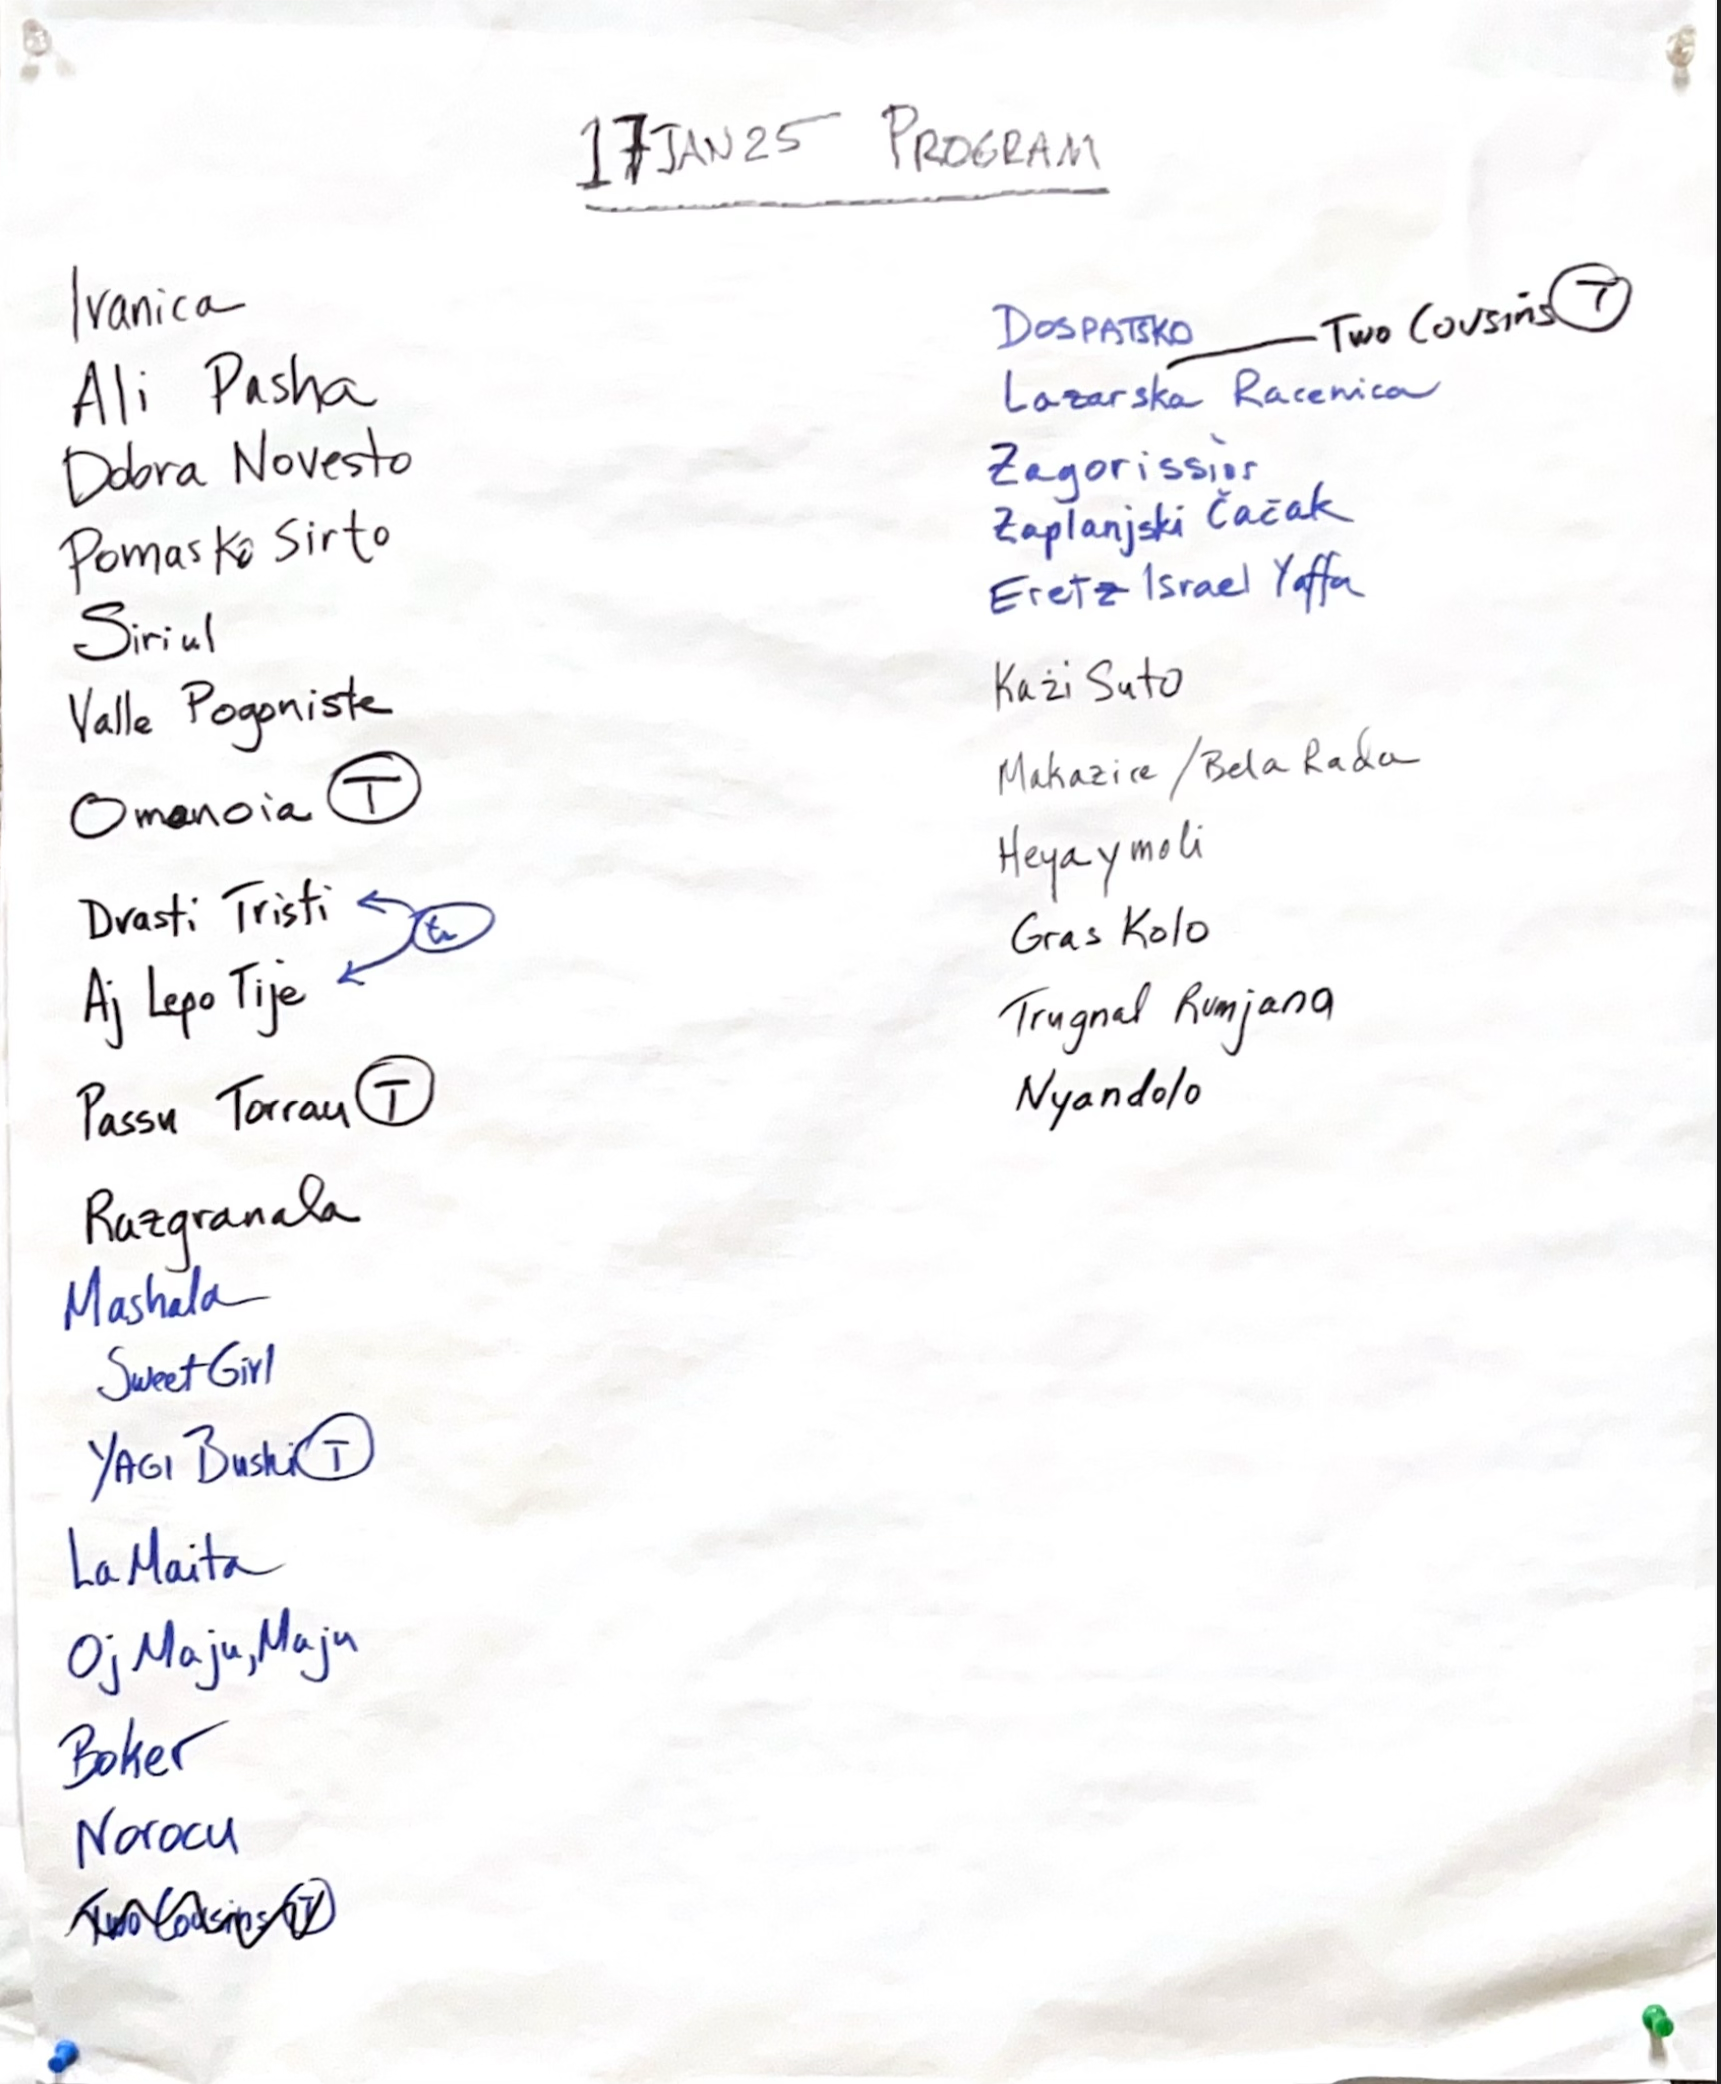 17 JAN 25 PROGRAM
Ivanica
Ali Pasha
Dobra Novesto
Pomasko Sirto
Siriul
Valle Pogoniste
Omonoia T
Drasti Tristi
Aj Lepo Tije
Passu Torrau T
Razgranala
Mashala
Sweet Girl
YAGI Bushi T
La Maita
Oj Maju, Maju
Boker
Norocu
Two Cousins T
DOSPATSKO
Two Cousins T
Lazarska Racenica
Zagorissios
Zaplanjski Čačak
Eretz Israel Yaffa
Kaži Suto
Makazice / Bela Rada
Heyaymoli
Gras Kolo
Trugnal Rumjana
Nyandolo